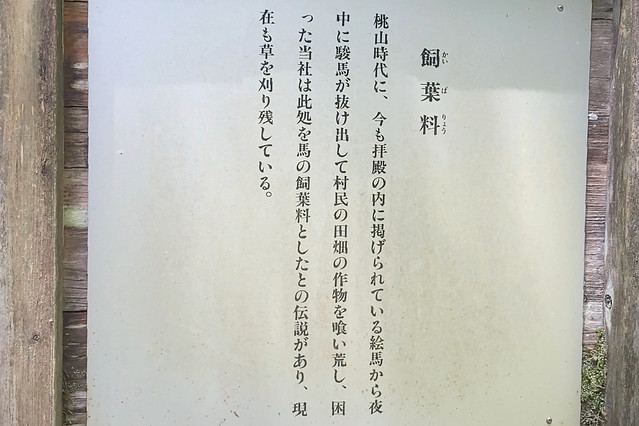 飼葉料
かいばりょう
桃山時代に、今も拝殿の内に掲げられている絵馬から夜
中に駿馬が抜け出して村民の田畑の作物を喰い荒し、困
った当社は此処を馬の飼葉料としたとの伝説があり、現
在も草を刈り残している。